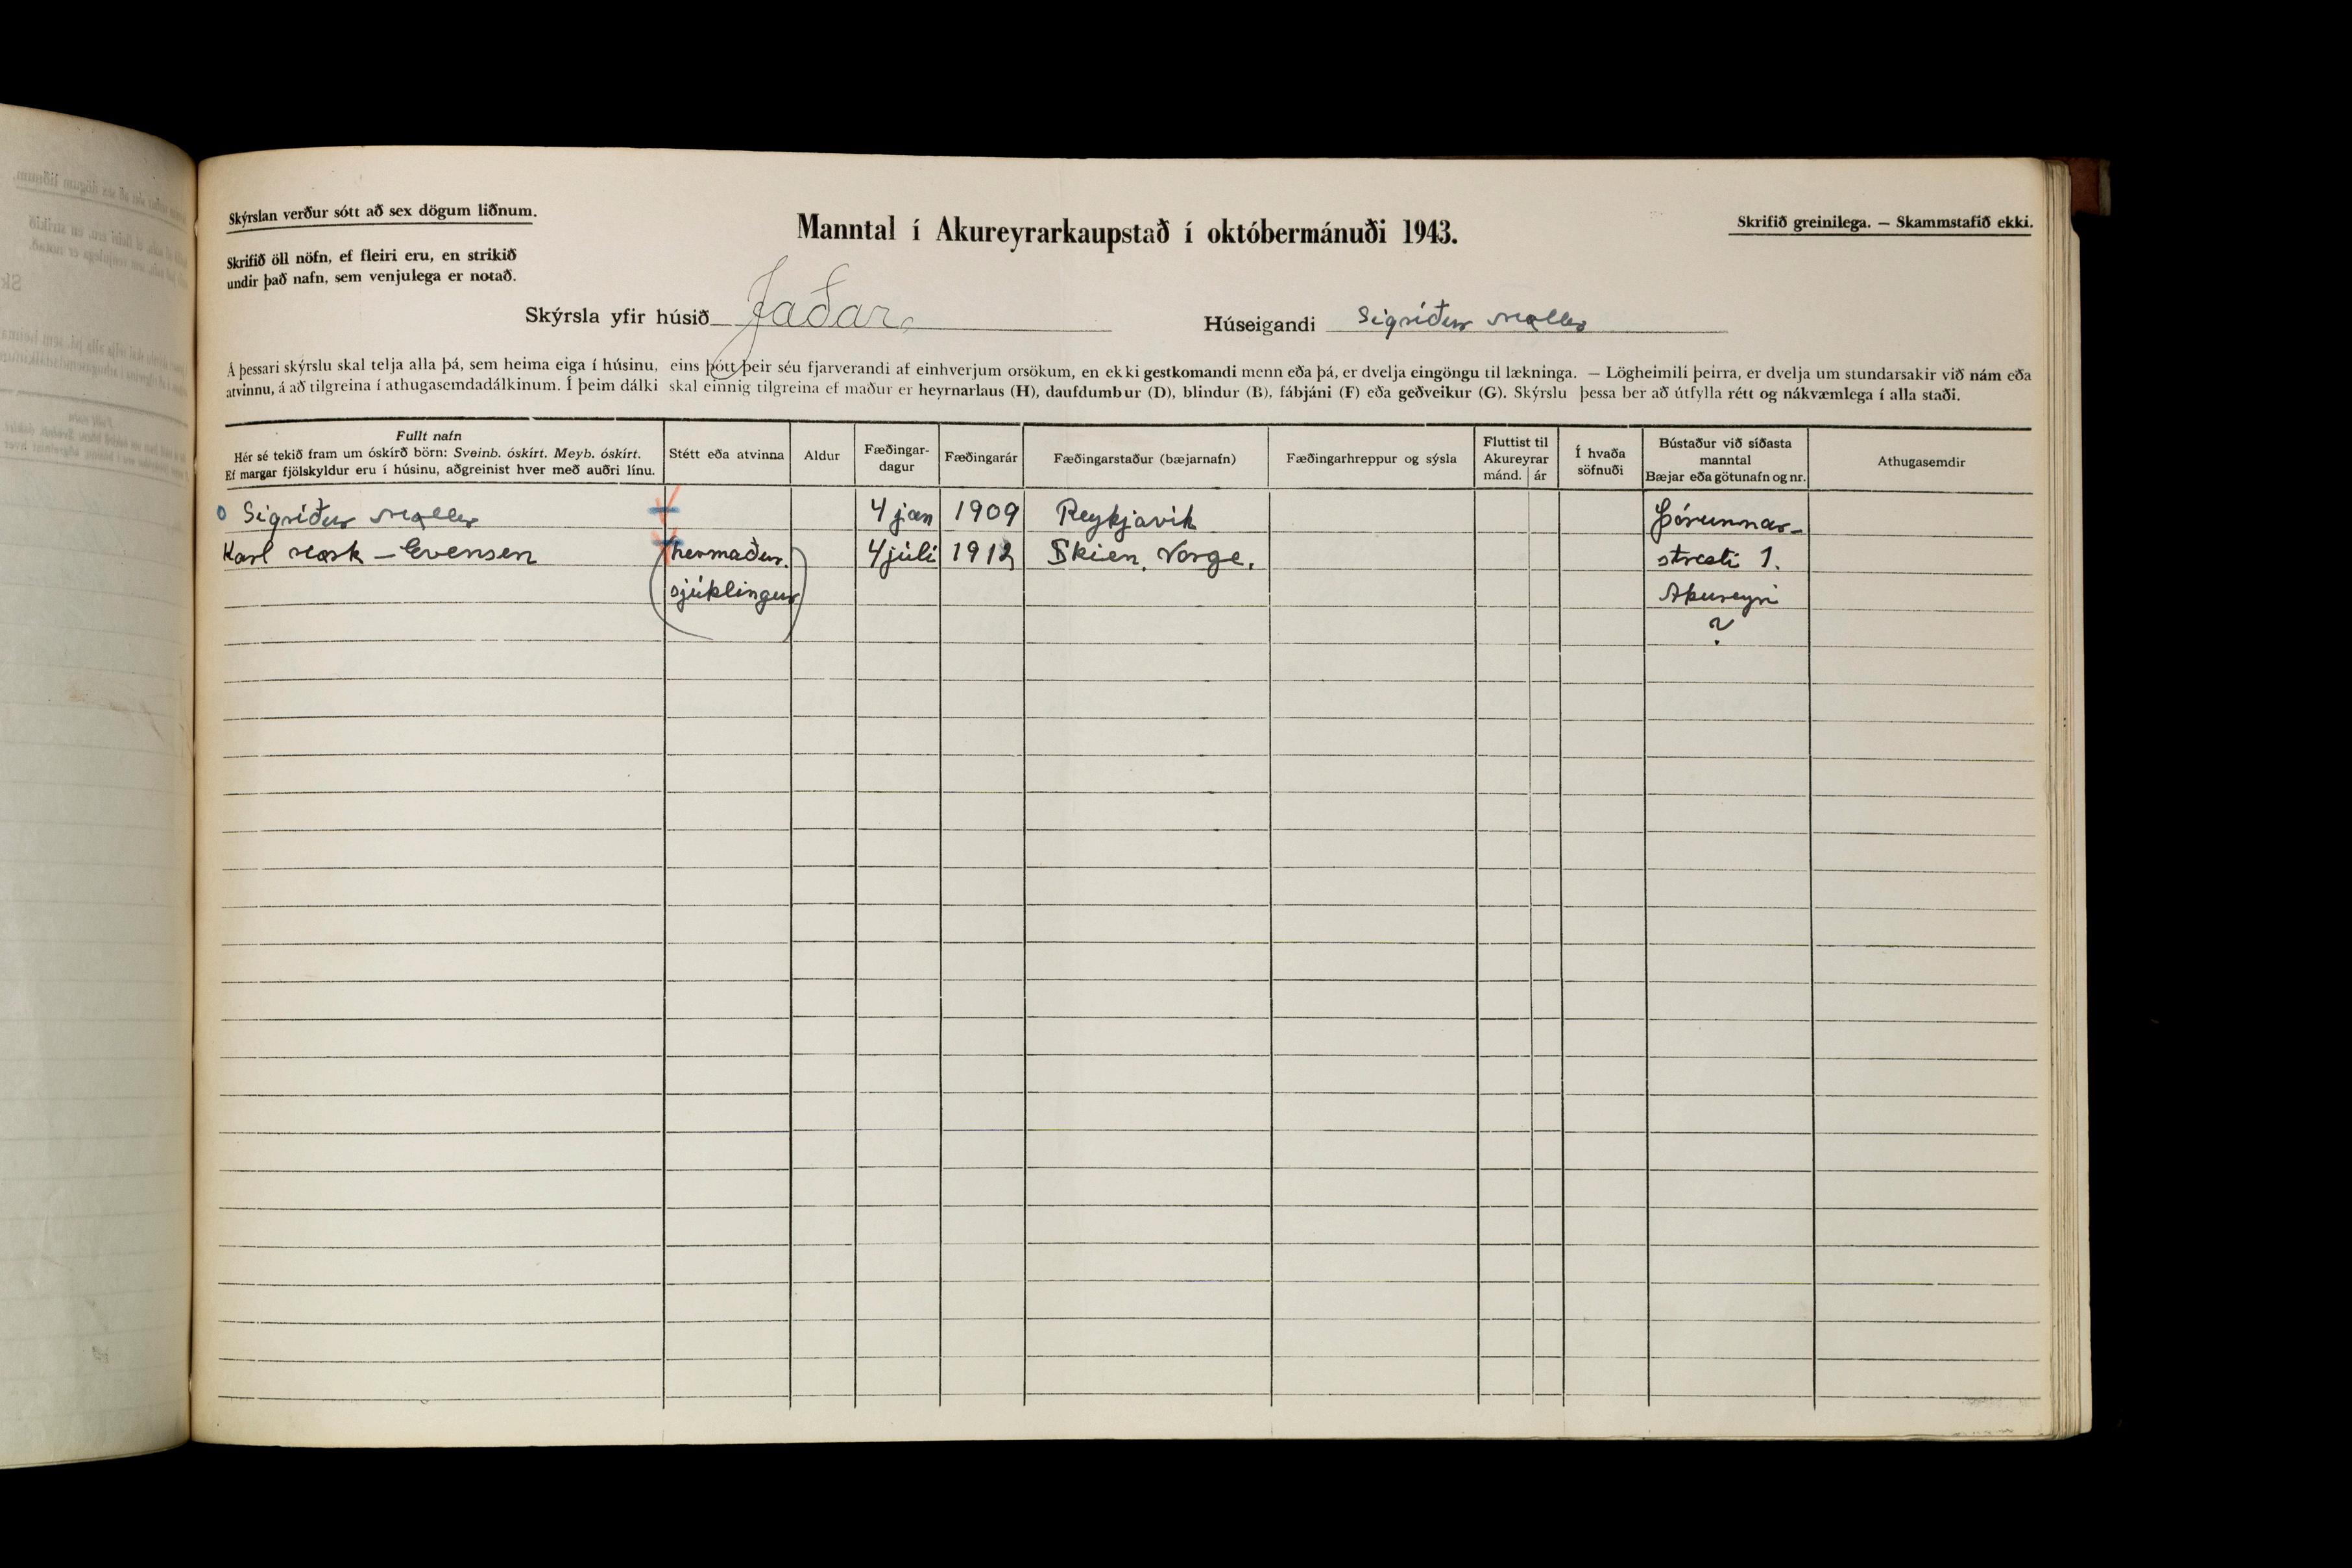 Skýrslan verður sótt að sex dögum liðnum.
Skrifið öll nöfn, ef fleiri eru, en strikið
undir það nafn, sem venjulega er notað.
Manntal í Akureyrarkaupstað í októbermánuði 1943.
Skrifið greinilega. — Skammstafið ekki.
Skýrsla yfir húsið Jaðar
Húseigandi Sigríður Møller
Á þessari skýrslu skal telja alla þá, sem heima eiga í húsinu, eins þótt þeir séu fjarverandi af einhverjum orsökum, en ekki gestkomandi menn eða þá, er dvelja eingöngu til lækninga. — Lögheimili þeirra, er dvelja um stundarsakir við nám eða
atvinnu, á að tilgreina í athugasemdadálkinum. Í þeim dálki skal einnig tilgreina ef maður er heyrnarlaus (H), daufdumbur (D), blindur (B), fábjáni (F) eða geðveikur (G). Skýrslu þessa ber að útfylla rétt og nákvæmlega í alla staði.
Fullt nafn
Hér sé tekið fram um óskírð börn: Sveinb. óskírt. Meyb. óskírt.
Ef margar fjölskyldur eru í húsinu, aðgreinist hver með auðri línu.
Stétt eða atvinna
Aldur
Fæðingar-
dagur
Fæðingarár
Fæðingarstaður (bæjarnafn)
Fæðingarhreppur og sýsla
Fluttist til
Akureyrar
mánd. ár
Í hvaða
söfnuði
Bústaður við síðasta
manntal
Bæjar eða götunafn og nr.
Athugasemdir
Sigríður Møller 4 jan 1909 Reykjavík Þórunnar-
Karl - Evensen hermaður. 4 júli 1912 Skien, Norge. stræti 1.
sjúklingur Akureyri
?